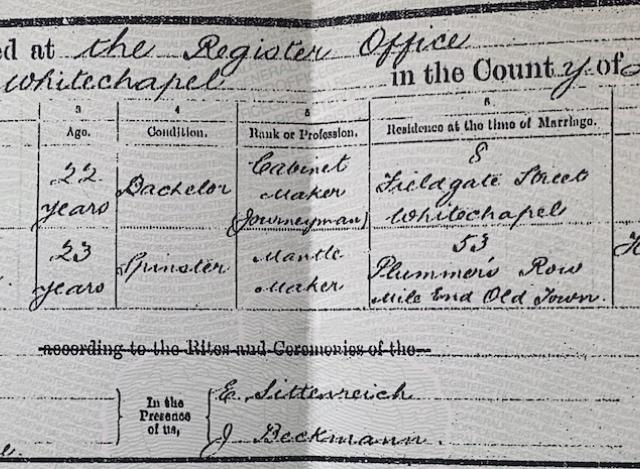 ed at the Register Office
Whitechapel in the County of
3 4 5 6
Age. Condition. Rank or Profession. Residence at the time of Marriage.
22 years Bachelor Cabinet Maker (Journeyman) 8 Fieldgate Street Whitechapel
23 years Spinster Mantle Maker 53 Plummer's Row Mile End Old Town.
according to the Rites and Ceremonies of the
In the Presence of us,
E. Sittenreich
J Beckmann.